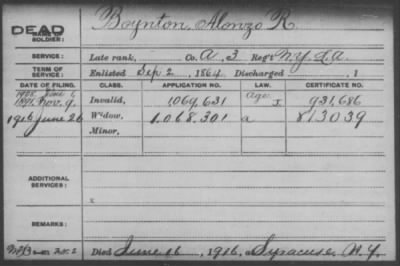 DEAD
NAME OF SOLDIER: Boynton, Alonzo R.
SERVICE: Late rank, Co. A, 3 Reg't N.Y. L.A.
TERM OF SERVICE: Enlisted Sep 2, 1864 Discharged , 1
DATE OF FILING. CLASS. APPLICATION NO. LAW. CERTIFICATE NO.
1908. June 6
1891, Nov. 9. Invalid, 1,069,631 Age J. 931,686
1916 June 26 Widow, 1,068,301 a 813039
Minor,
ADDITIONAL SERVICES:
x
REMARKS:
Died June 16, 1916, at Syracuse, N.Y.